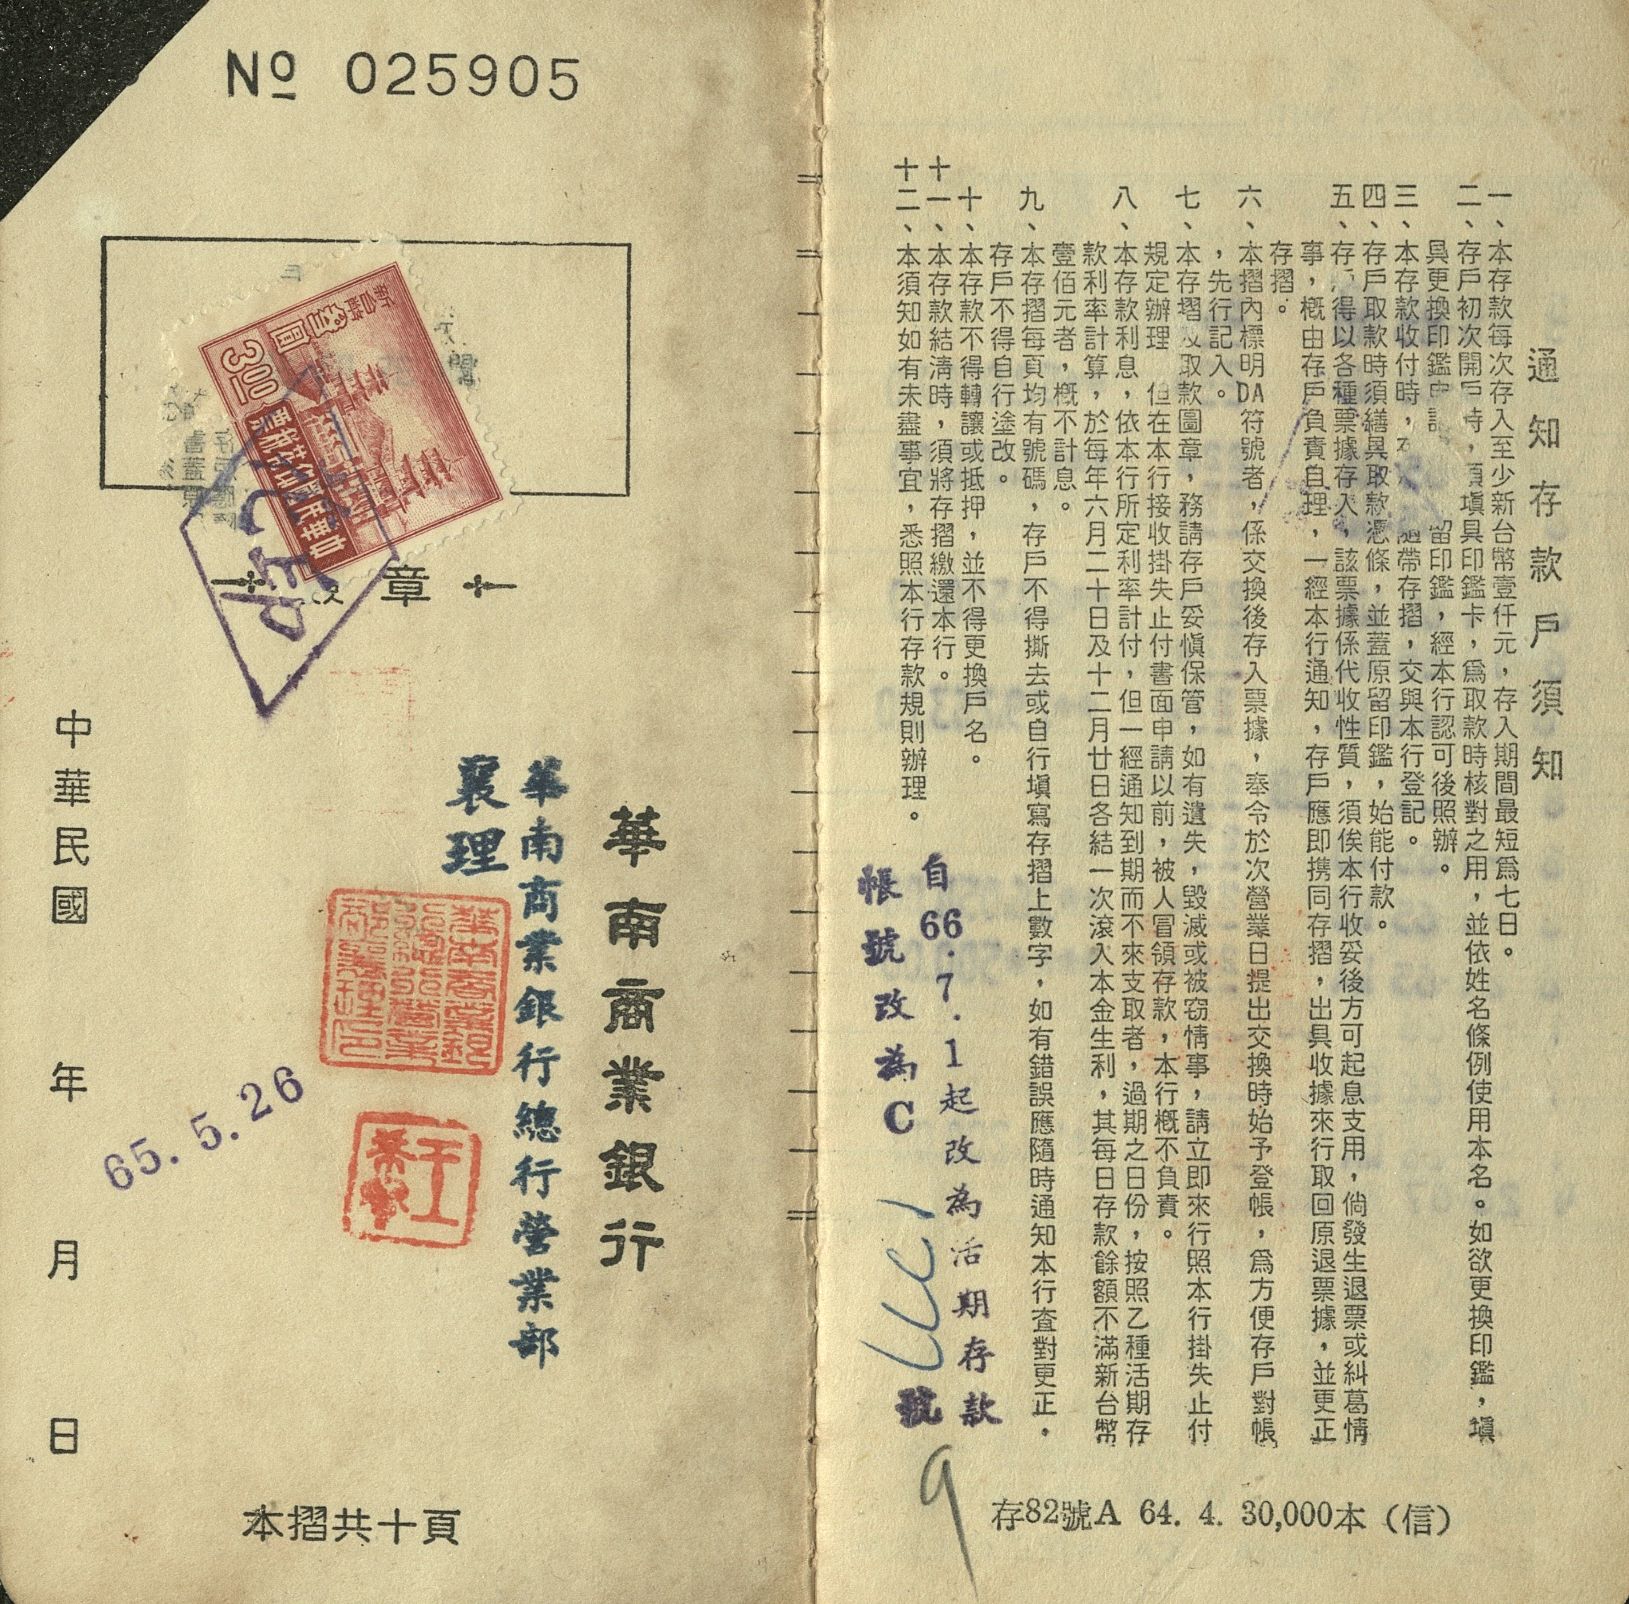 通知存款戶須知
一、本存款每次存入至少新台幣壹仟元，存入期間最短爲七日。
二、存戶初次開戶時，須塡具印鑑卡，爲取款時核對之用，並依姓名條例使用本名。如欲更換印鑑，塡
具更換印鑑申請 留印鑑，經本行認可後照辦。
三、本存款收付時， 隨帶存摺，交與本行登記。
四、存戶取款時須繕具取款憑條，並蓋原留印鑑，始能付款。
五、存 得以各種票據存入，該票據係代收性質，須俟本行收妥後方可起息支用，倘發生退票或糾葛情
事，概由存戶負責自理，一經本行通知，存戶應即携同存摺，出具收據來行取回原退票據，並更正
存摺。
六、本摺內標明DA符號者，係交換後存入票據，奉令於次營業日提出交換時始予登帳，爲方便存戶對帳
，先行記入。
七、本存摺及取款圖章，務請存戶妥愼保管，如有遺失，毀滅或被窃情事，請立即來行照本行掛失止付
規定辦理 但在本行接收掛失止付書面申請以前，被人冒領存款，本行概不負責。
八、本存款利息，依本行所定利率計付，但一經通知到期而不來支取者，過期之日份，按照乙種活期存
款利率計算，於每年六月二十日及十二月廿日各結一次滾入本金生利，其每日存款餘額不滿新台幣
壹佰元者，概不計息。
九、本存摺每頁均有號碼，存戶不得撕去或自行塡寫存摺上數字，如有錯誤應隨時通知本行查對更正，
存戶不得自行塗改。
十、本存款不得轉讓或抵押，並不得更換戶名。
十一、本存款結淸時，須將存摺繳還本行。
十二、本須知如有未盡事宜，悉照本行存款規則辦理。
自66.7.1起改為活期存款
帳號改為C 號
9
存82號A 64. 4. 30,000本（信）
№ 025905
新台幣
叁圓
300
中華民國印花稅票
章
華南商業銀行
華南商業銀行總行營業部
襄理
中華民國 年 月 日
65. 5. 26
本摺共十頁